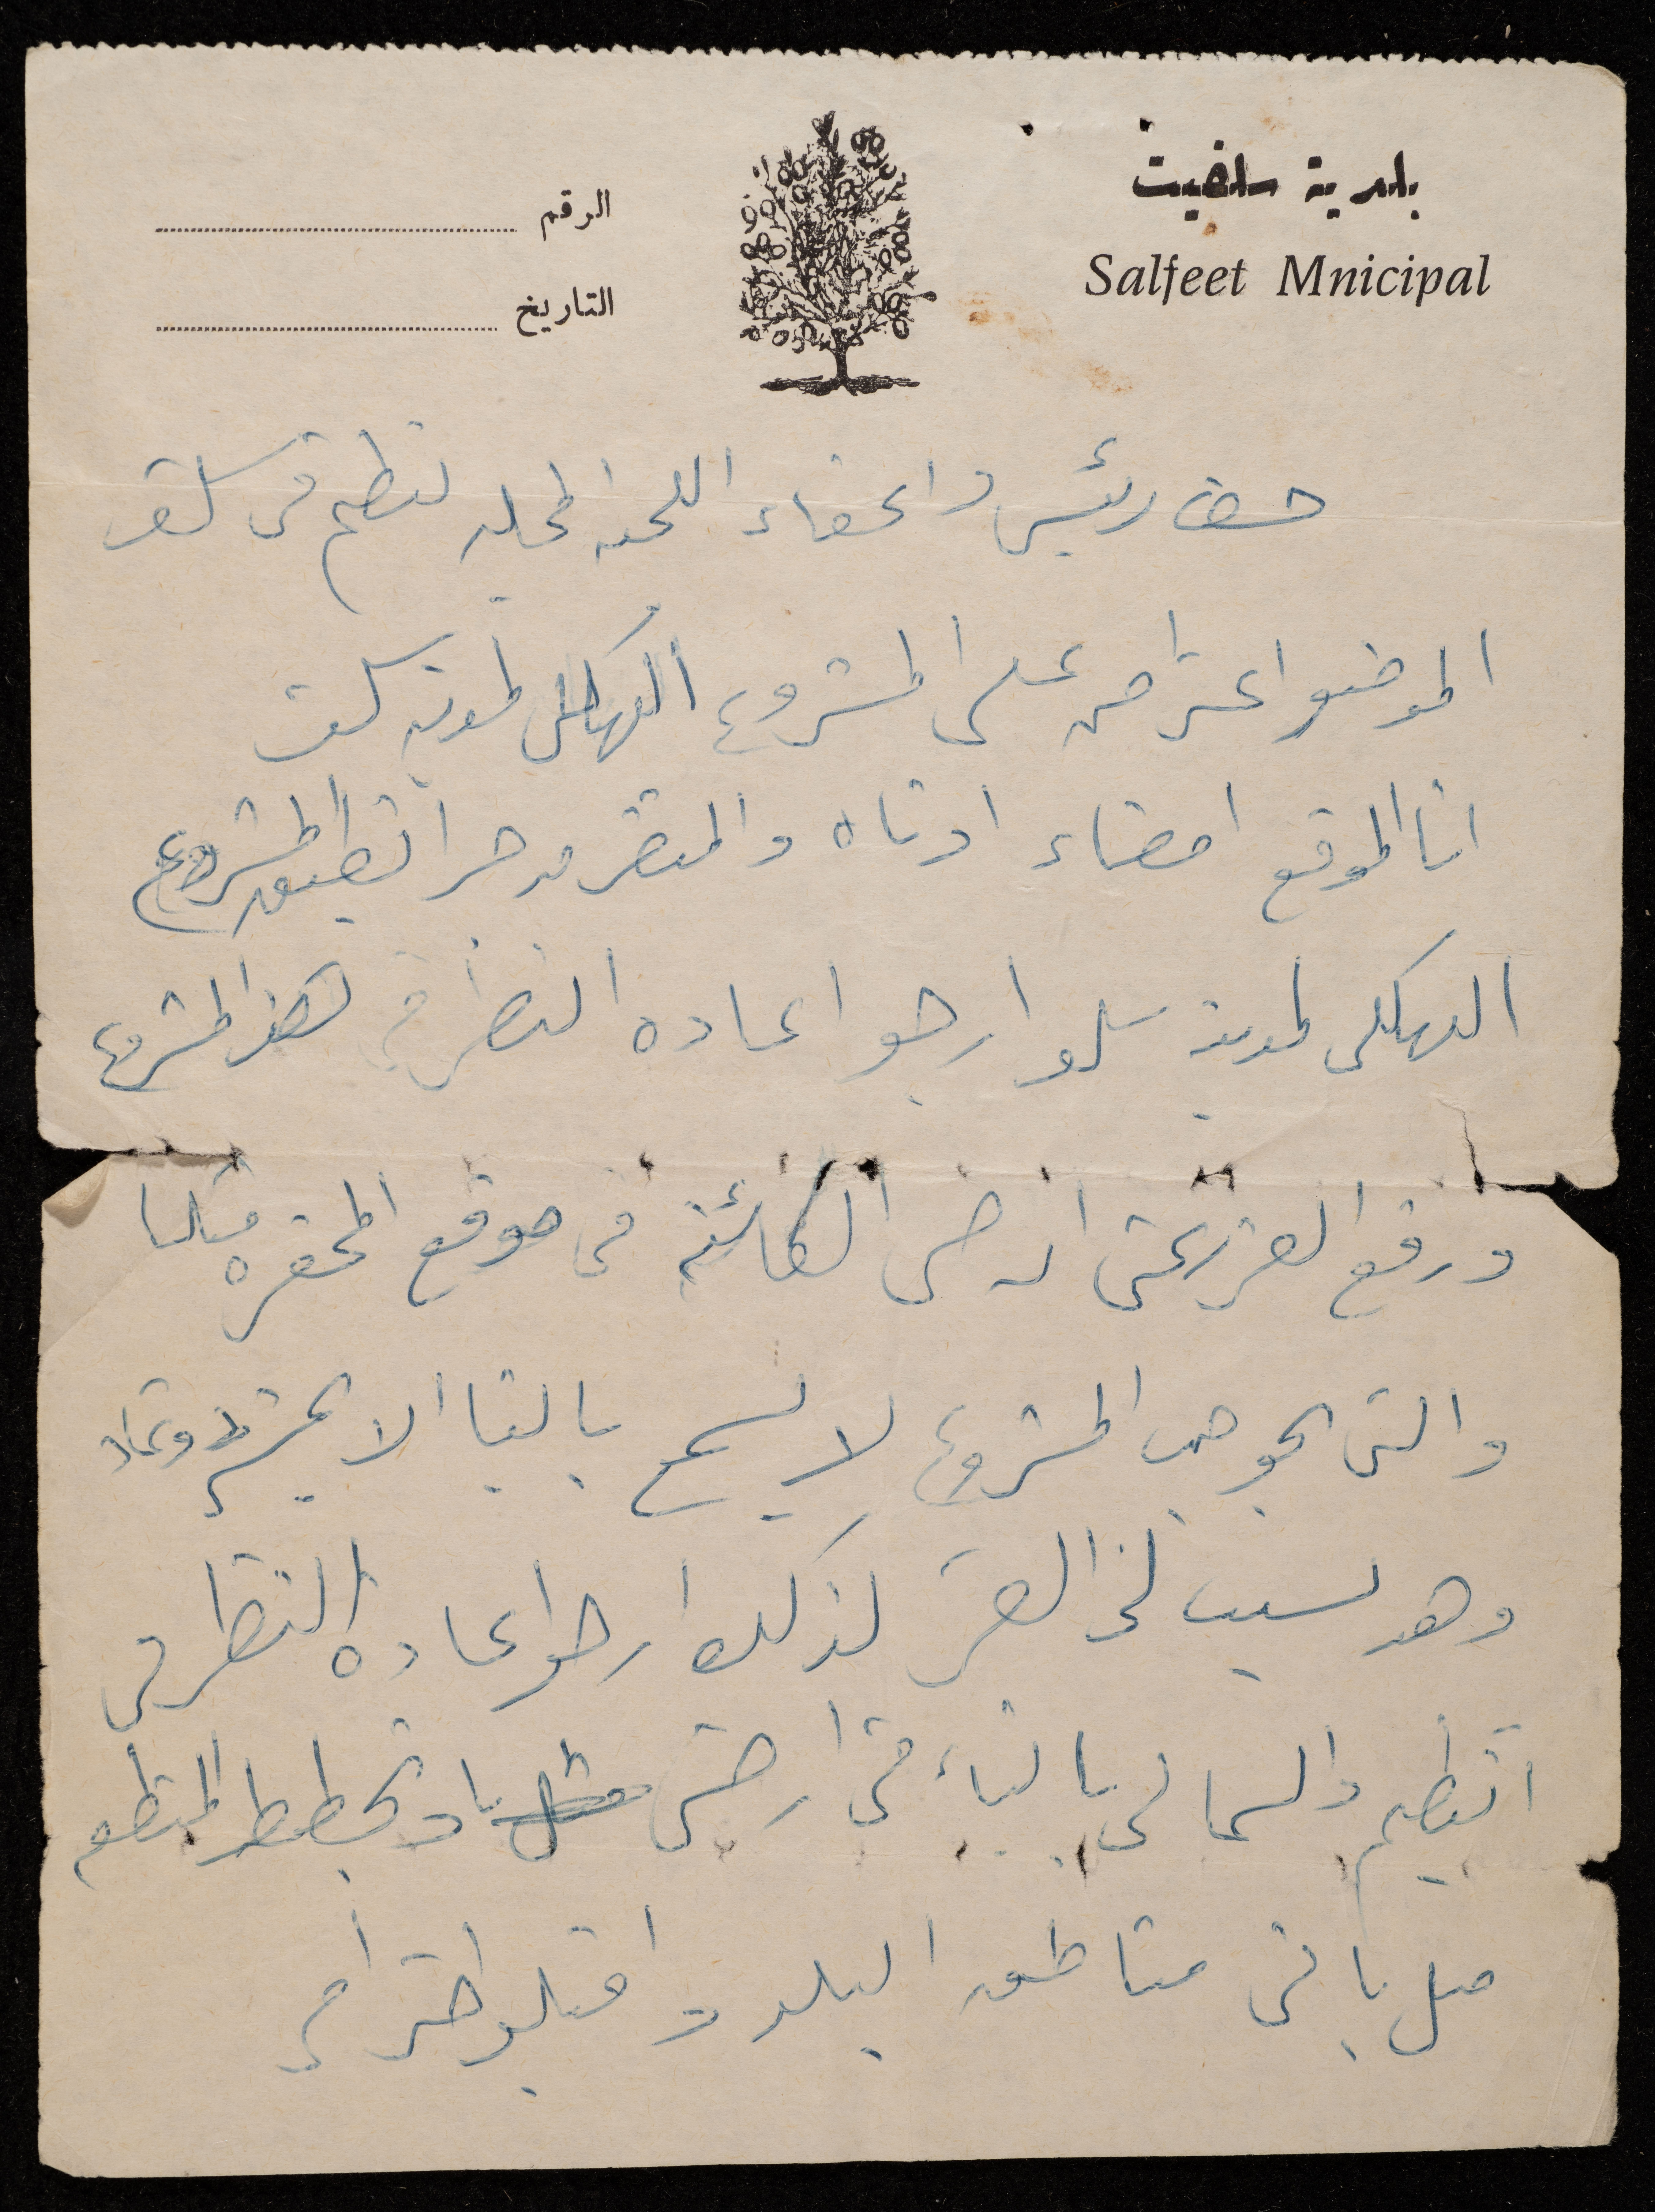 بلدية سلفيت
Salfeet Mnicipal
الرقم
التاريخ
حضرة رئيس واعضاء اللجنه المحليه لتنظيم في سلفيت
الموضوع اعتراض على المشروع الهيكلي لمدينة سلفيت
انا الموقع امضاء ادناه والمتضرر من جرا تطبيق المشروع
الهيكلي لمدينة سلفيت ارجو اعاده النظر في هذا المشروع
ورفع الضرر عن ارضي الكائنه في موقع
والتي بموجب المشروع لا يسمح بالبنا الا
وهد نسبت لي الضرر لذلك ارجو اعاده النظر في
التنظيم والسماح لي بالبناء في ارضي المنظم
مثل باقي مناطق البلد واقبلو احترامي